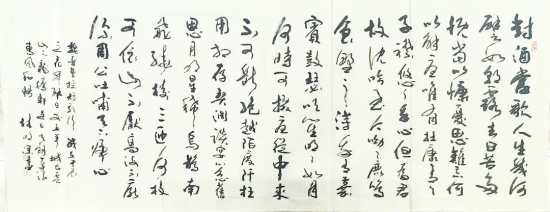 對酒當歌人生幾何
譬如朝露去日苦多
慨當以慷憂思難忘何
以解憂唯有杜康青青
子襟悠悠我心但為君
故沈吟至今呦呦鹿鳴
食野之苹我有嘉
賓鼓瑟吹笙明明如月
何時可掇憂從中來
不可斷絕越陌度阡枉
用相存契闊談讌心念舊
恩月明星稀烏鵲南
飛繞樹三匝何枝
可依山不厭高海不厭
深周公吐哺天下歸心
惠風和暢